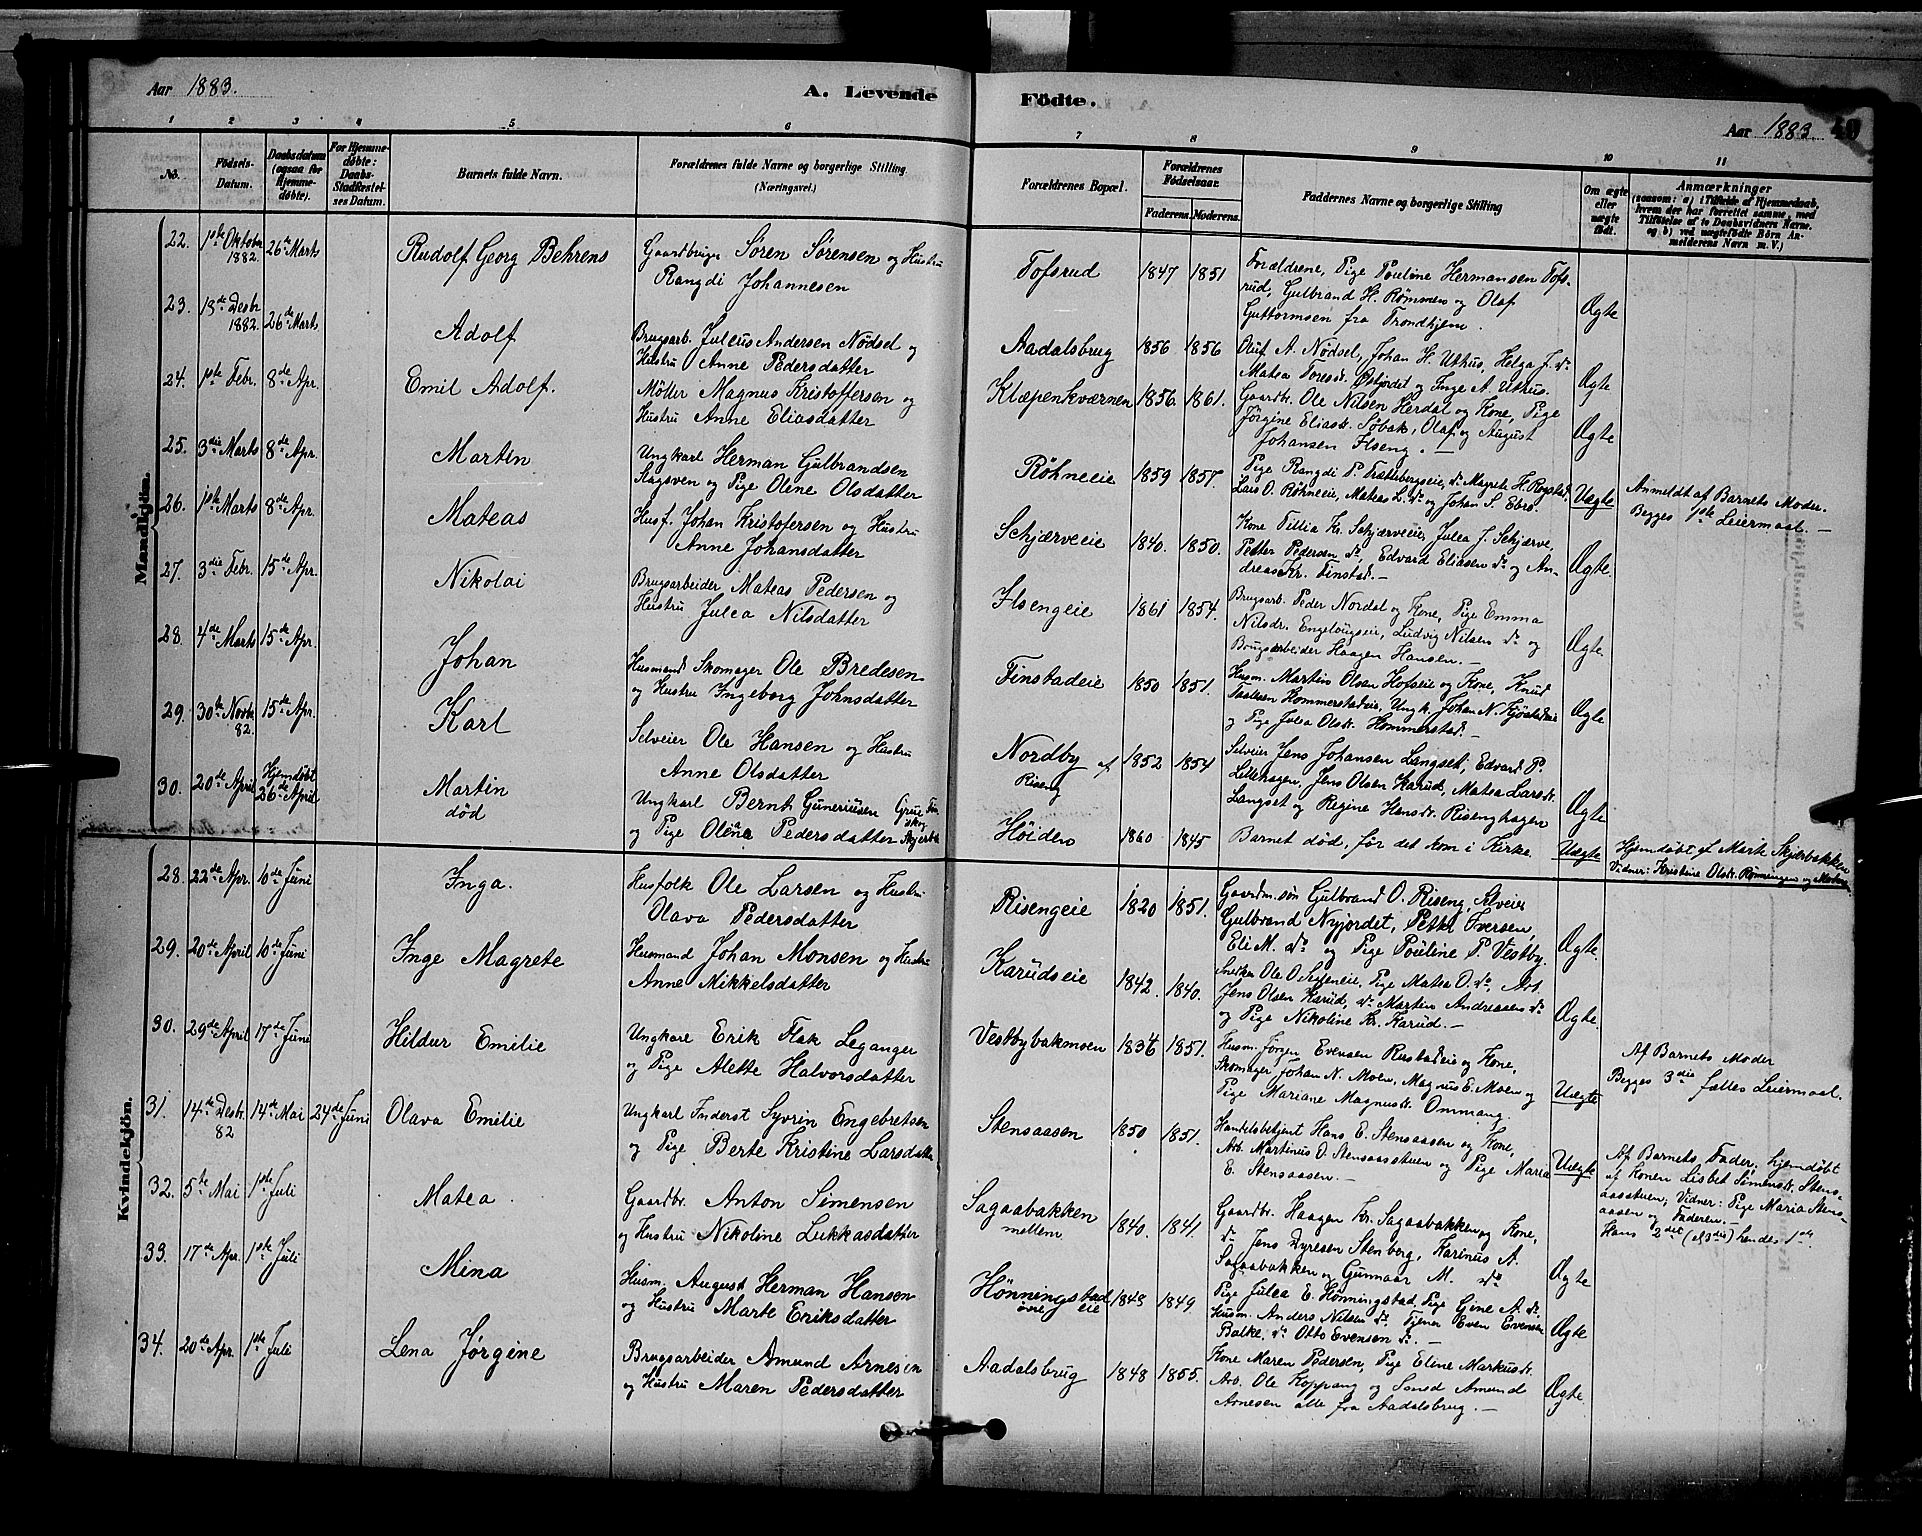 Aar 1883.
A. Levende
Födte.
Aar 1883
40
1 2 3 4 5 6 7 8 9 10 11
No.
Födsels-
Datum.
Daabsdatum
(ogsaa for
Hjemme-
döbte).
For Hjemme-
döbte:
Daabs-
Stadfæstel-
ses Datum.
Barnets fulde Navn.
Forældrenes fulde Navne og borgerlige Stilling
(Næringsvei.)
Forældrenes Bopæl.
Forældrenes
Födselsaar.
Faderens. Moderens.
Faddernes Navne og borgerlige Stilling
Om ægte
eller
uægte
födt.
Anmærkninger
(saasom: a) i Tilfælde af Hjemmedaab,
hvem der har forrettet samme, med
Tilföielse af to Daabsvidners Navne,
og b) ved uægtefödte Börn An-
melderens Navn m. V.)
Mandkjön.
22. 1ste Oktobr 1882. 26de Marts
Rudolf Georg Behrens
Gaardbruger Søren Sørensen og Hustru
Rangdi Johannesen
Tofsrud 1847 1851
Forældrene, Pige Pouline Hermansen Tofs-
rud, Gulbrand H. Rømmen og Olaf
Guttormsen fra Trondhjem.
Ægte
23. 18de Desbr 1882. 26de Marts
Adolf
Brugsarb. Juleus Andersen Nødsel og
Hustru Anne Pedersdatter
Aadalsbrug 1856 1856
Oluf A. Nødsel, Johan H. Uthus, Helga J. do
Matea Toresdr. Østjordet og Inge A. Uthus.
Ægte
24. 1ste Febr. 8de Apr.
Emil Adolf.
Møller Magnus Kristoffersen og
Hustru Anne Eliasdatter
Klæpenkværnen 1856. 1861.
Gaardbr. Ole Nilsen Herdal og Kone, Pige
Jørgine Eliasdr. Søbak, Olaf og August
Johansen Ilseng. —
Ægte
25. 3die Marts 8de Apr.
Martin
Ungkarl Herman Gulbrandsen
Slagsven og Pige Oline Olsdatter
Røhneeie 1859 1857.
Pige Rangdi P. Frættebergseie, do Magrete H. Rogstad,
Lars O. Røhneeie, Mateas L. do og Johan S. Ebro.
Uægte
Anmeldt af Barnets Moder.
Begges 1ste Leiermaal. —
26. 1ste Marts 8de Apr.
Mateas
Husf. Johan Kristofersen og Hustru
Anne Johansdatter
Schjærveeie 1840. 1850.
Kone Tillia Kr. Schjærveeie, Julea J. Schjærve,
Petter Pedersen do Edvard Eliasen do og An-
dreas Kr. Finstad. —
Ægte.
27. 3die Febr. 15de Apr.
Nikolai
Brugsarbeider Mateas Pedersen og
Hustru Julea Nilsdatter
Ilsengeie 1861 1854.
Brugsarb. Peder Nordal og Kone, Pige Emma
Nilsdr. Engeløugseie, Ludvig Nilsen do og
Brugsarbeider Haagen Hansen. —
Ægte.
28. 4de Marts 15de Apr.
Johan
Husmand Skomager Ole Bredesen
og Hustru Ingeborg Johnsdatter
Finstadeie 1850 1851.
Husm. Martin Olsen Hofseie og Kone, Knud
Paalsen Hommerstadeie, Ungk. Johan N. Kjøstadeie
og Pige Julea Olsdr. Hommerstad. —
Ægte.
29. 30te Novbr 82. 15de Apr.
Karl
Selveier Ole Hansen og Hustru
Anne Olsdatter
Nordby af
Riseng
1852 1854
Selveier Jens Johansen Langset, Edvard P.
Lillehagen, Jens Olsen Karud, Matea Larsdr.
Langset og Regine Hansdr. Risenghagen
Ægte
30. 20de April Hjemdøbt 26de April
Martin
død
Ungkarl Bernt Guneriusen Grue Finskog
og Pige Olina Pedersdatter
Høiden 1860 1845
Barnet død, før det kom i Kirke.
Uægte
Hjemdøbt af Marte Skjærbakken
Vidner: Kristine Olsdr. Rønningen og Moderen.
Kvindekjön.
28. 22de Apr. 10de Juni
Inga.
Husfolk Ole Larsen og Hustru
Olava Pedersdatter
Risengeie 1820 1851.
Gaardm. søn Gulbrand O. Riseng, Selveier
Gulbrand Nyjordet, Petter Iversen,
Eli M. do og Pige Pouline P. Vestby.
Ægte.
29. 20de April 10de Juni
Inge Magrete
Husmand Johan Monsen og Hustru
Anne Mikkelsdatter
Karudseie 1842. 1840.
Snedker Ole O. Seffeneie, Pige Matea O. do, Arb.
Jens Olsen Karud, do Martin Andreasen do
og Pige Nikoline Kr. Karud. —
Ægte.
30. 29de April 17de Juni
Hildur Emilie
Ungkarl Erik Flak Leganger
og Pige Alette Halvorsdatter
Vestbybakmoen 1836 1851.
Husm. Jørgen Evensen Rustadeie og Kone,
Skomager Johan N. Moen, Magnus E. Moen og
Pige Mariane Magnusdr. Ommang.
Uægte
Af Barnets Moder
Begges 3die fælles Leiermaal.
31. 14de Desbr. 82 14de Mai 24de Juni
Olava Emilie
Ungkarl Inderst Syvrin Engebretsen
og Pige Berte Kristine Larsdatter
Stensaasen 1850 1851.
Handelsbetjent Hans E. Stensaasen og Kone,
Arb. Martinus O. Stensaasstuen og Pige Maria
E. Stensaasen. —
Uægte
Af Barnets Fader; hjemdøbt
af Konen Lisbet Simensdr. Stens-
aasstuen; Vidner: Pige Maria Stens-
aasen og Faderen. —
Hans 2det (el 3die) hendes 1ste
32. 5te Mai 1ste Juli
Matea.
Gaardbr. Anton Simensen
og Hustru Nikoline Lukkasdatter
Sagaabakken
mellem
1840. 1841.
Gaardbr. Haagen Kr. Sagaabakken og Kone,
do Jens Dyresen Stenberg, Karinus A.
Sagaabakken og Gunnar M. do
Ægte
33. 17de Apr. 1ste Juli
Mina
Husm. August Herman Hansen
og Hustru Marte Eriksdatter
Hønningstad
øvre eie
1843 1849
Pige Julea E. Hønningstad, Pige Gine A. do
Husm. Anders Nilsen do Tjener Even Evensen
Balke, do Otto Evensen do. —
Ægte
34. 20de Apr. 1ste Juli
Lena Jørgine
Brugsarbeider Amund Arnesen
og Hustru Maren Pedersdatter
Aadalsbrug 1848 1855.
Kone Maren Pedersen, Pige Eline Markusdr.
Arb. Ole Koppang og Amund
Arnesen alle fra Aadalsbrug. —
Ægte.